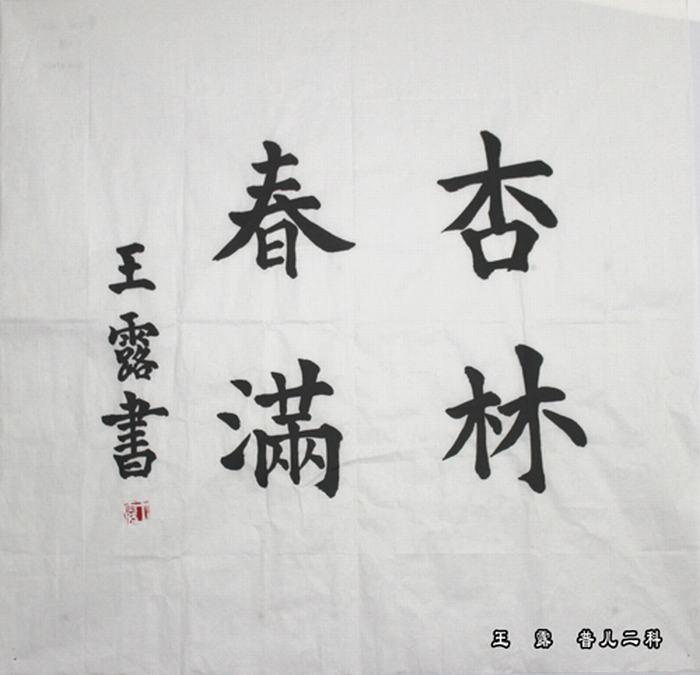 杏林
春滿
王露書
王 露 普儿二科